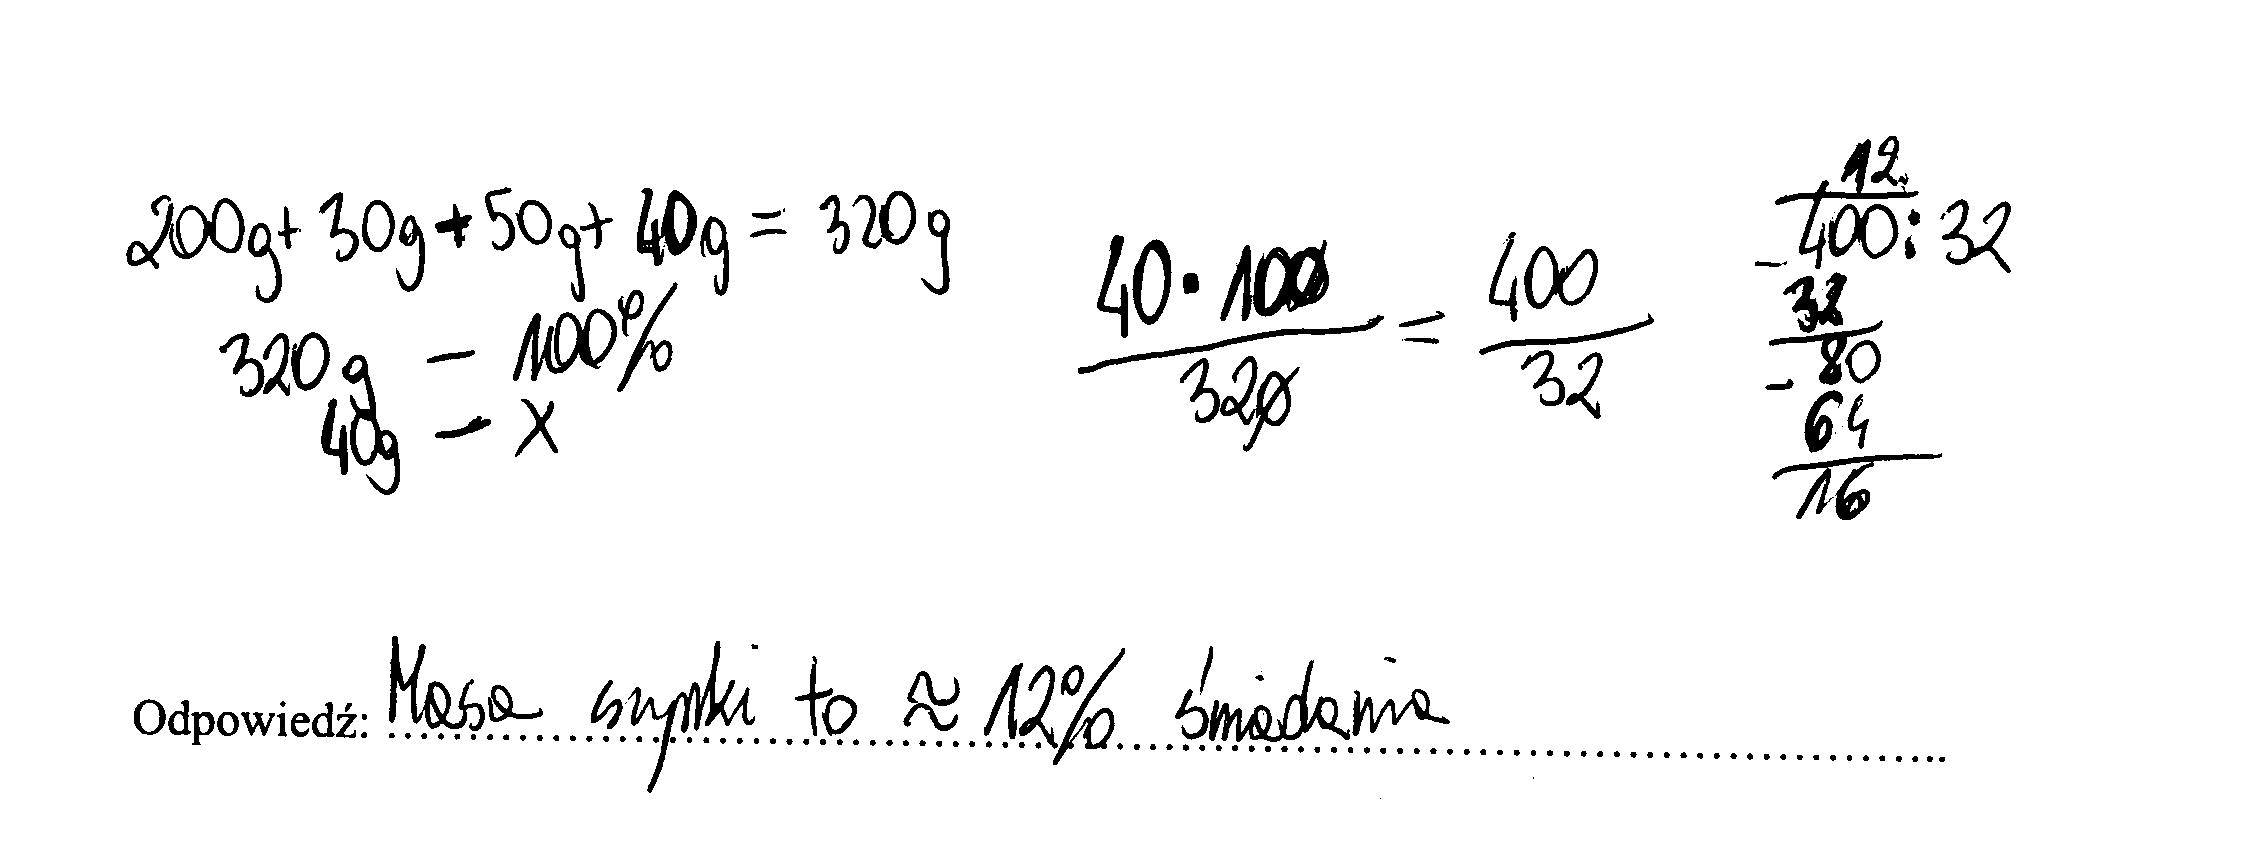 200g + 30g + 50g + 40g = 320g
320g — 100%
40g — x
40 · 100 / 320 = 400 / 32
12
400 : 32
- 32
80
- 64
16
Odpowiedź: Masa szynki to ≈ 12% śniadania